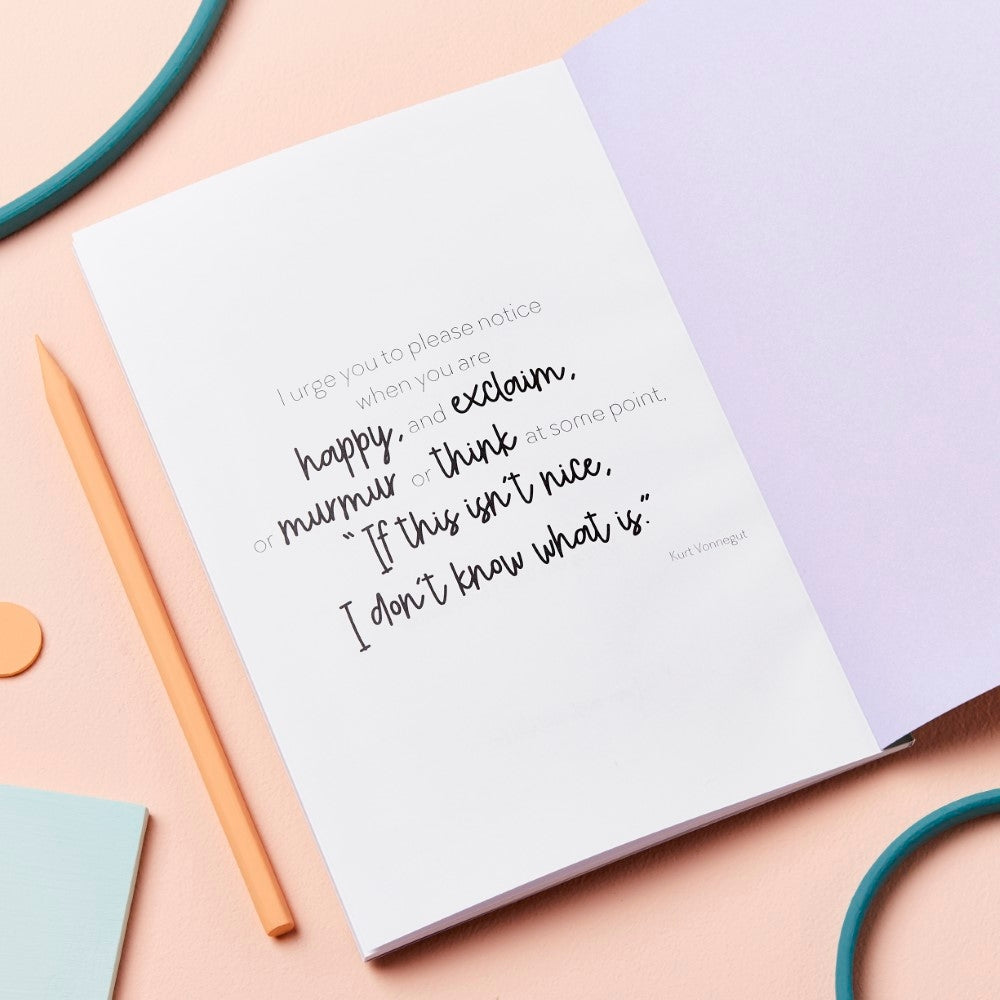 I urge you to please notice
when you are
happy, and exclaim,
or murmur or think at some point,
“If this isn't nice,
I don't know what is.”
Kurt Vonnegut